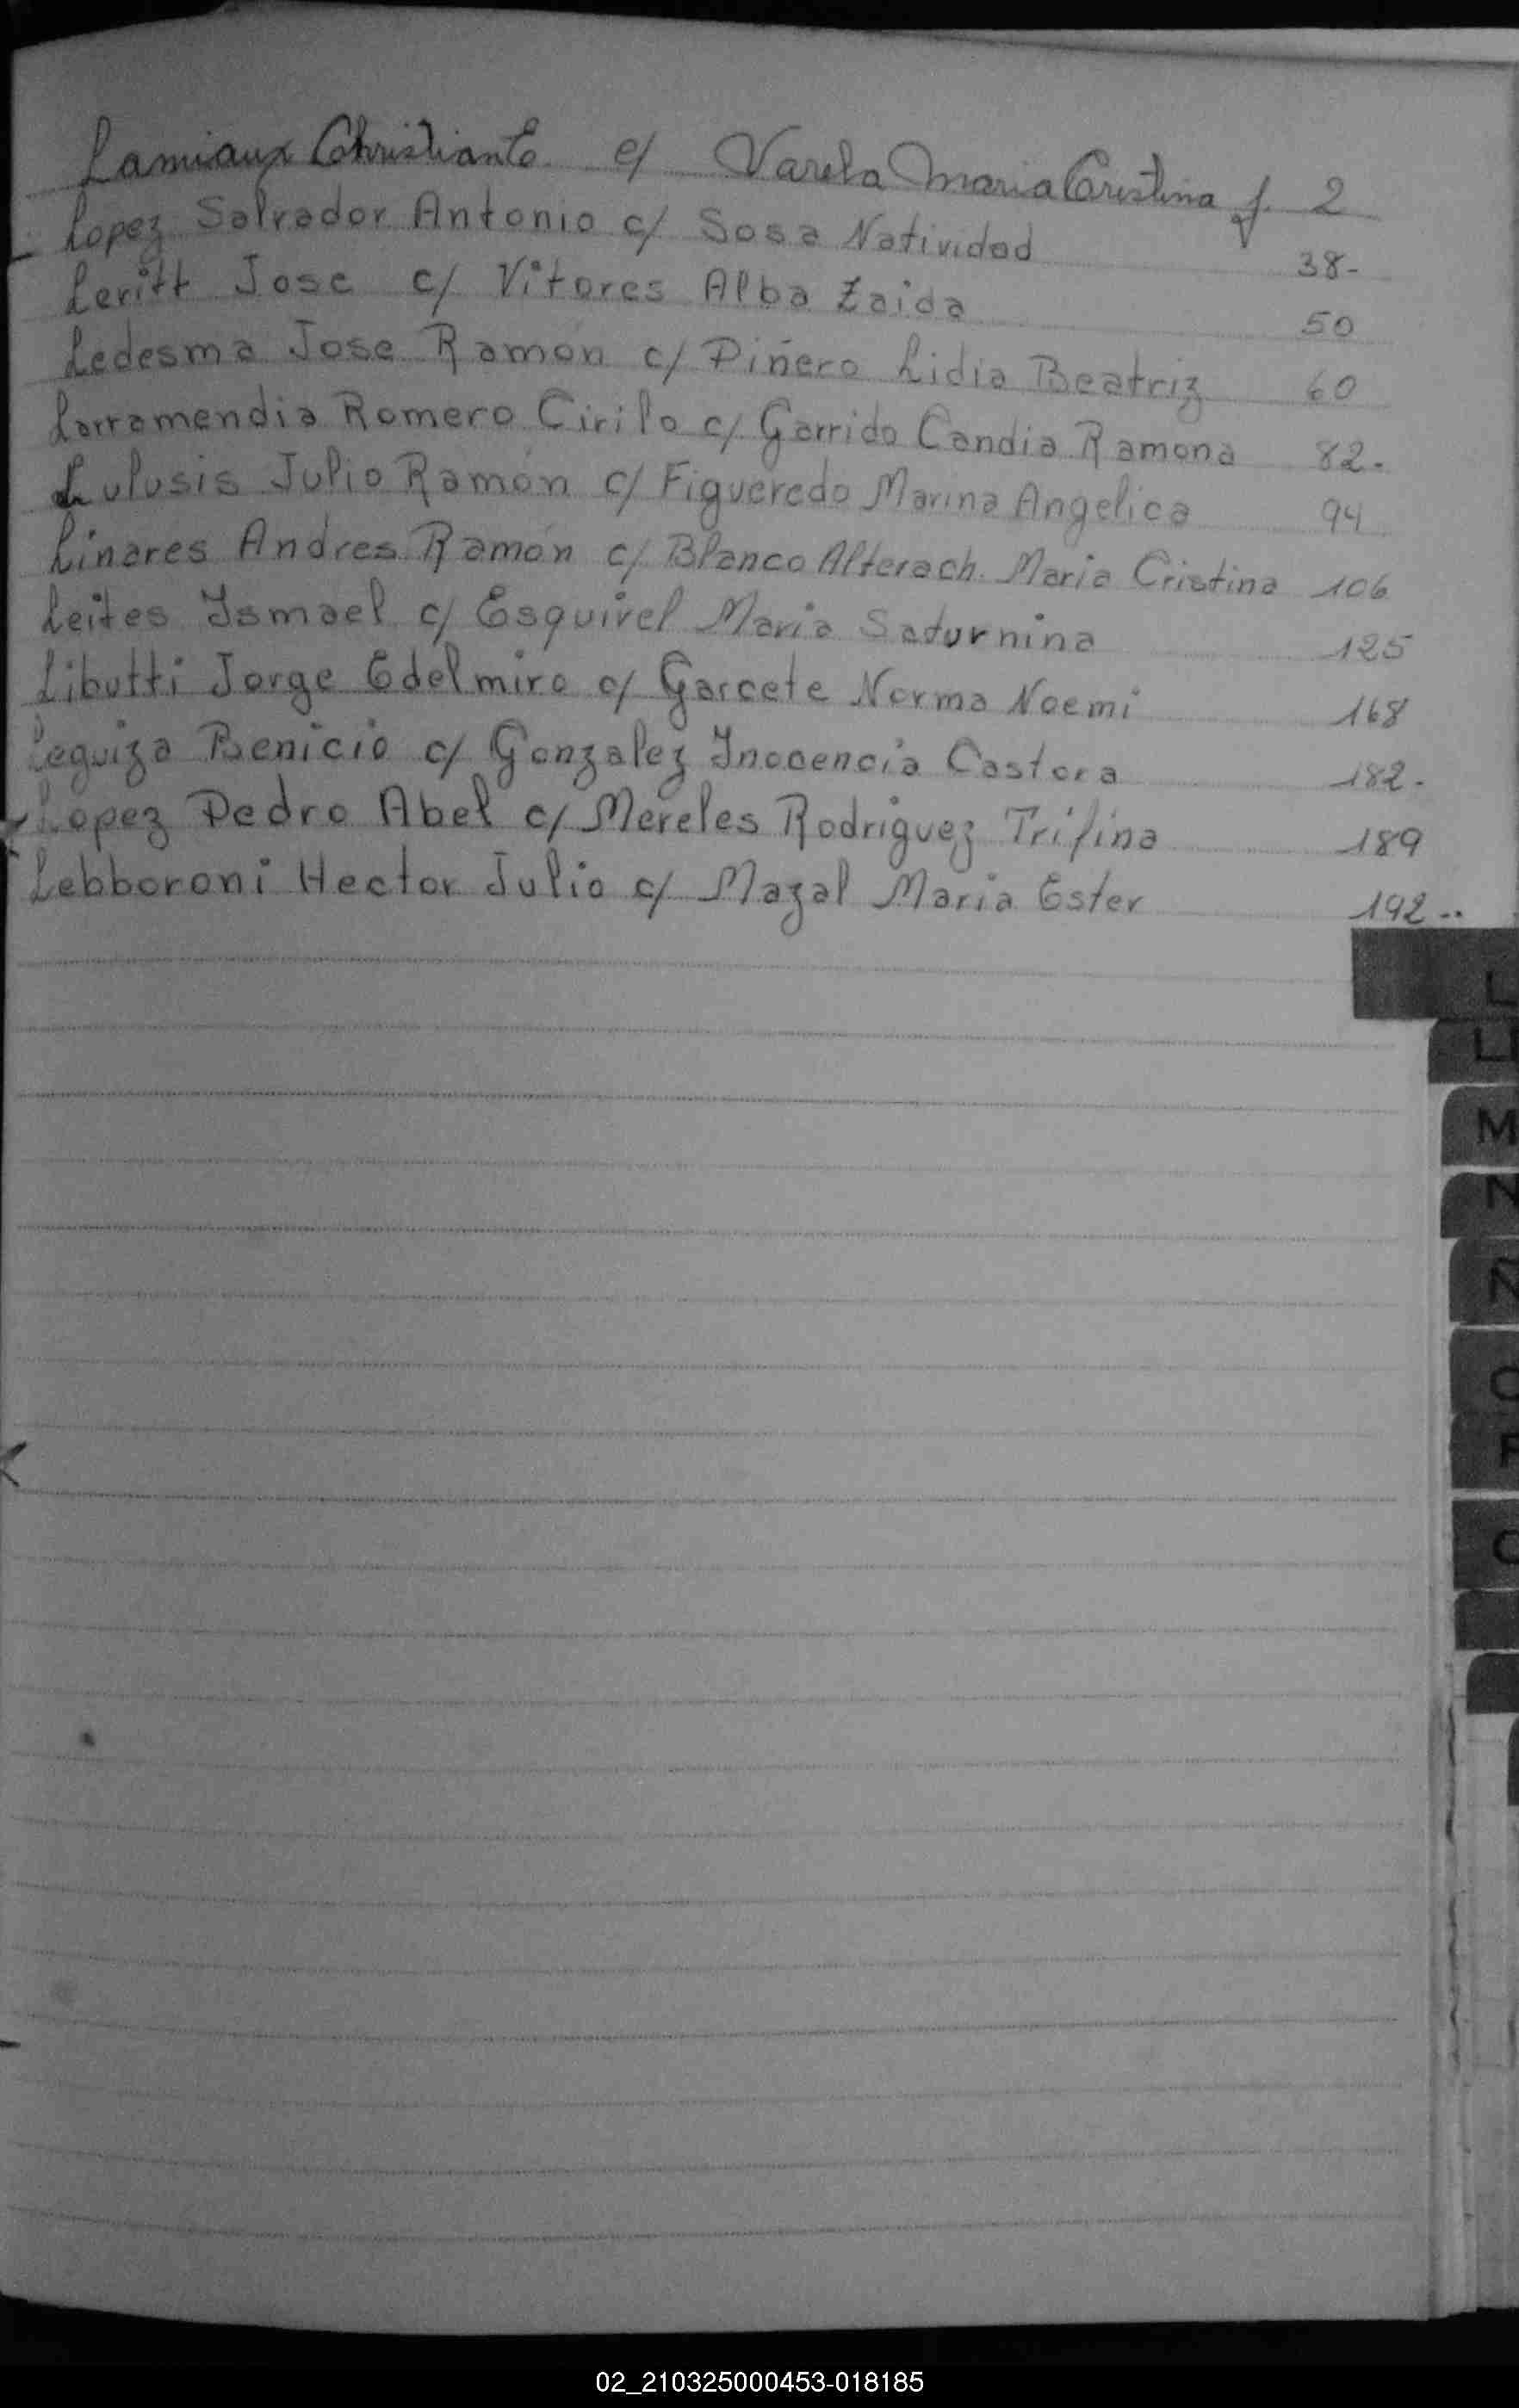 Lamiaux Christian E. c/ Varela Maria Cristina f. 2
Lopez Salvador Antonio c/ Sosa Natividad 38-
Leritt Jose c/ Vitores Alba Zaida 50
Ledesma Jose Ramón c/ Piñero Lidia Beatriz 60
Larramendia Romero Cirilo c/ Garrido Candia Ramona 82.
Lulusis Julio Ramón c/ Figueredo Marina Angelica 94
Linares Andres Ramón c/ Blanco Alterach. Maria Cristina 106
Leites Ismael c/ Esquivel Maria Saturnina 125
Libutti Jorge Edelmiro c/ Garcete Norma Noemi 168
Leguiza Benicio c/ Gonzalez Inocencia Castora 182.
Lopez Pedro Abel c/ Mereles Rodriguez Trifina 189
Lebboroni Hector Julio c/ Mazal Maria Ester 192..
L
LI
M
N
N
O
P
02_210325000453-018185